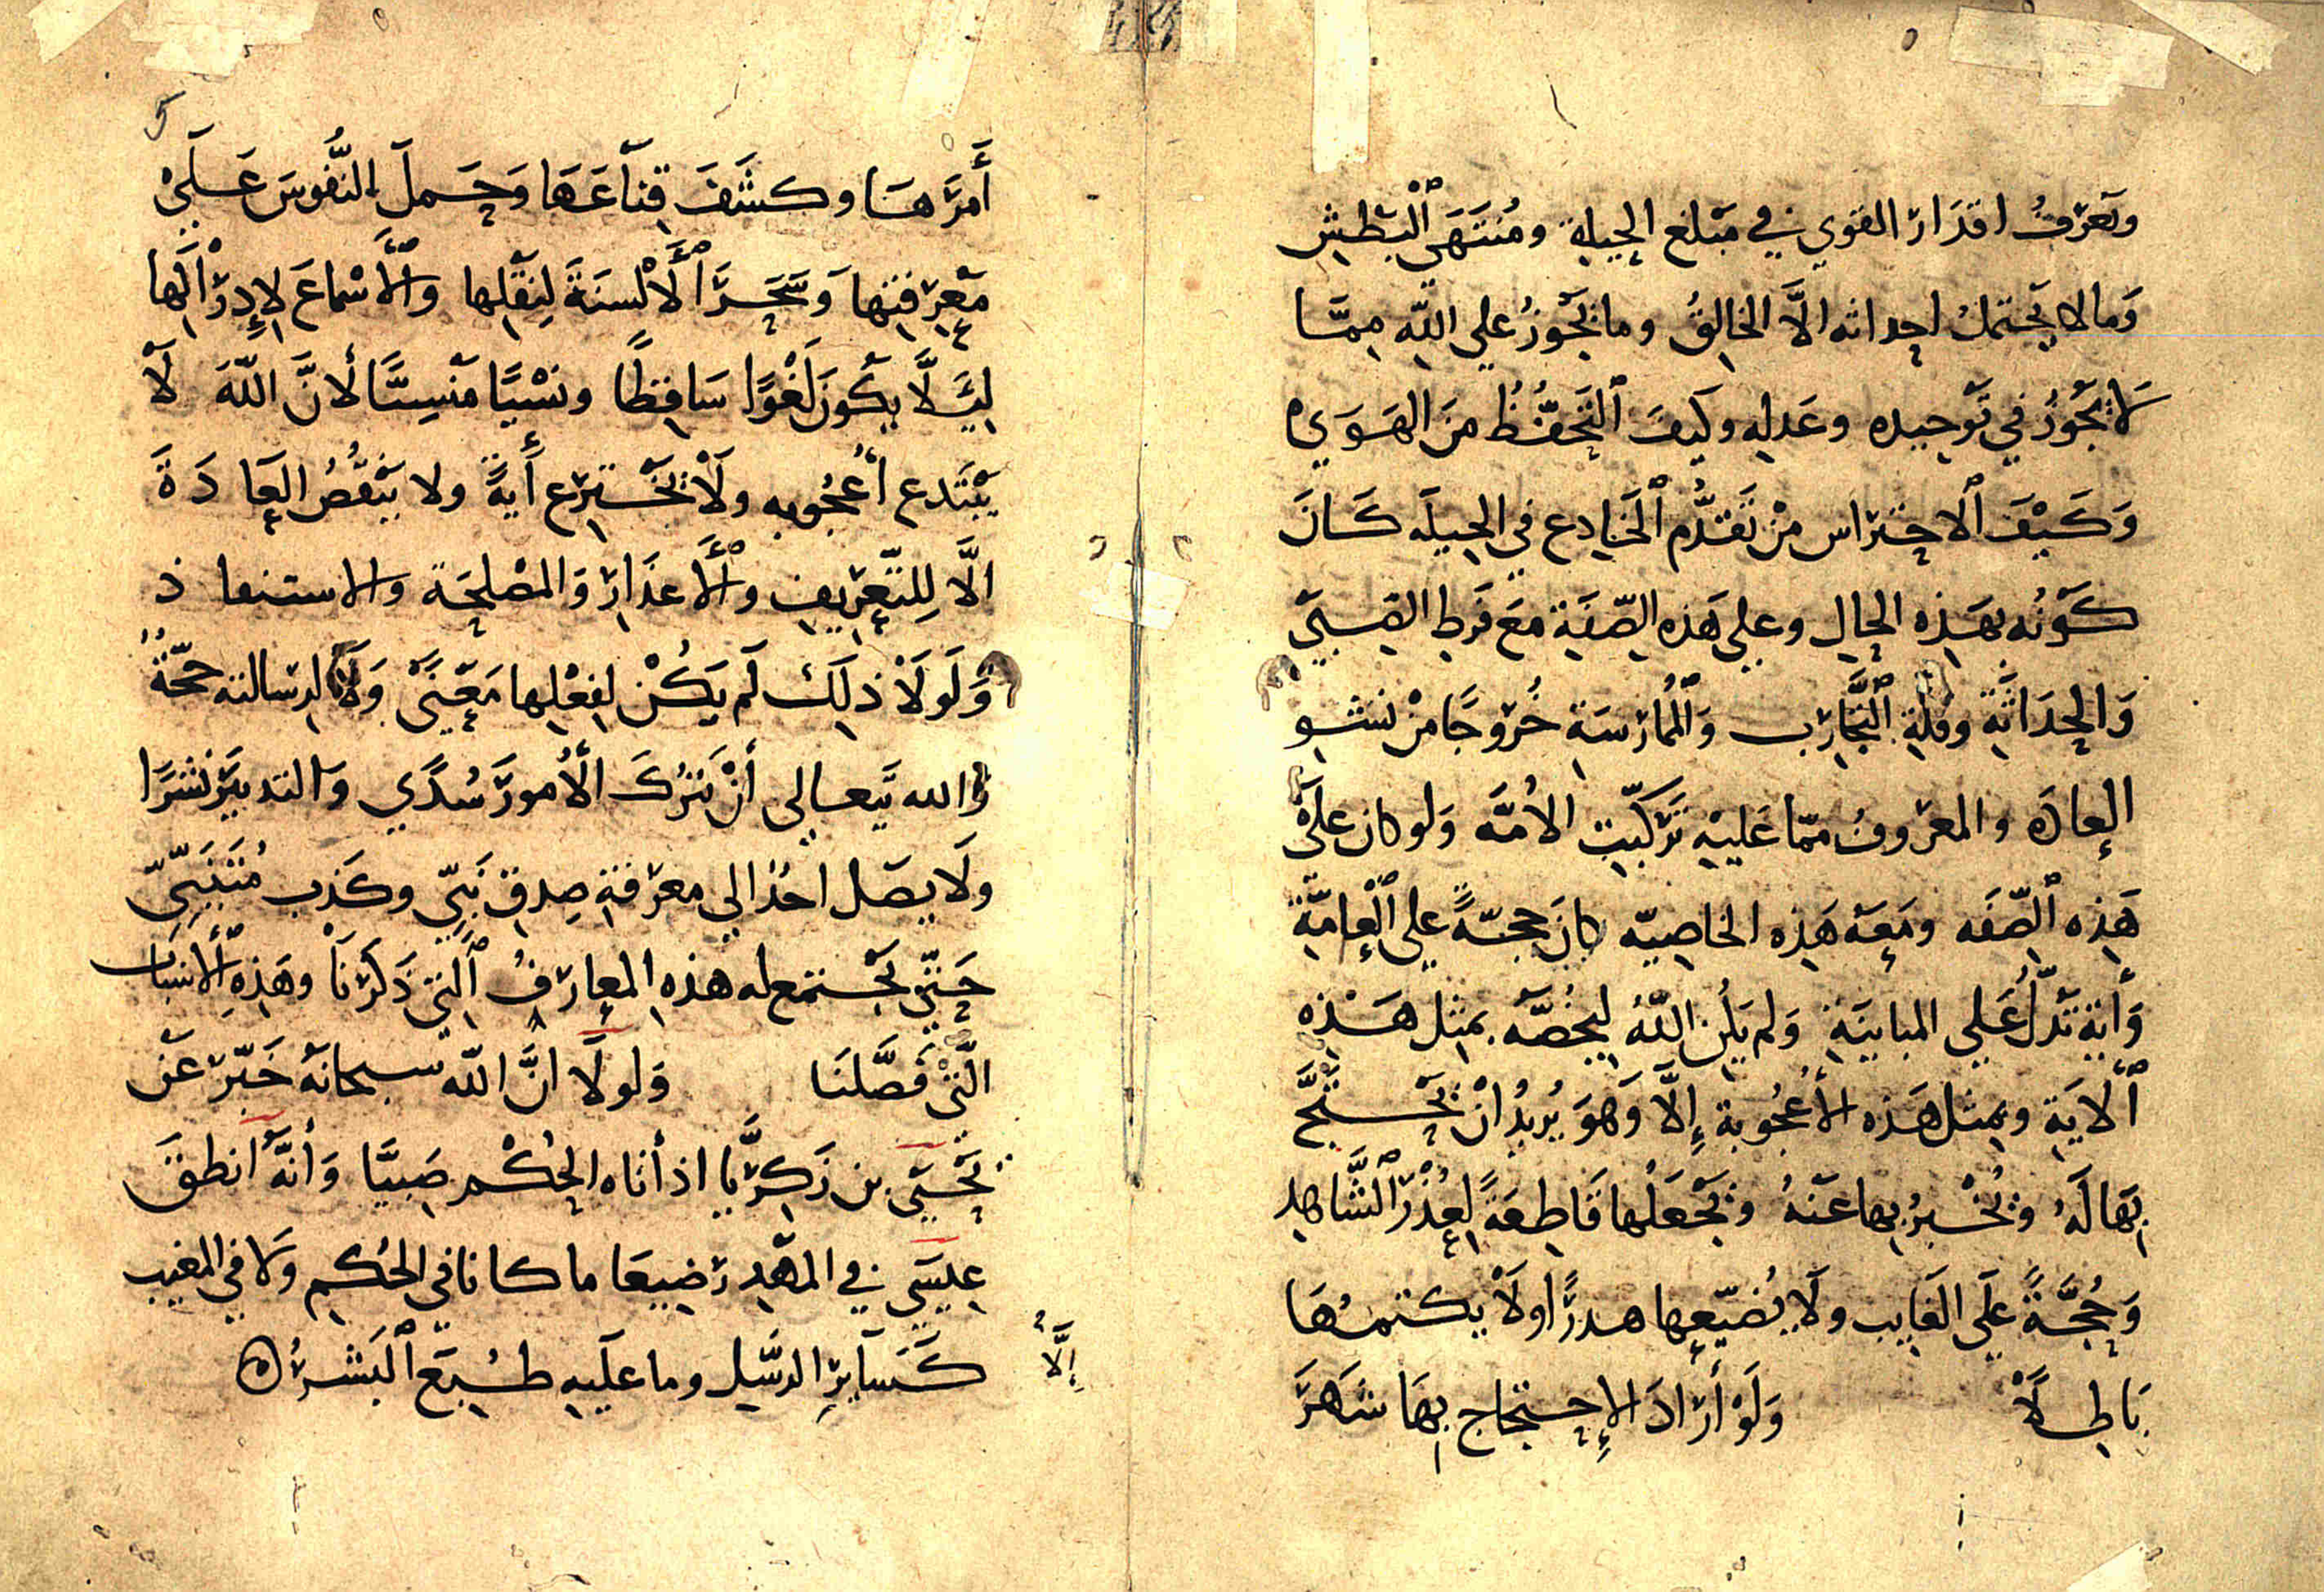 وتعرّفُ اقدَارَ القوي في مَبْلغ الحِيلةِ ومُنتَهَى ٱلْبَطْشِ
وَمالا يَحتملُ احداثه الاَّ الخالِقُ وما يَجُوزُ علي اللّهِ مِمَّا
لَا يَجُوْزُ في تَوْحِيده وعَدلِهِ وكيفَ ٱلتَحَفُّظُ مِنَ الهَوَي
وَكَيْفَ ٱلاحتراس مِنْ تَقَدُّم ٱلخَادِع في الحِيلَه كَانَ
كَوْنُه بهَذِهِ الحَالِ وعلي هَذهِ الصّفَةِ مَعَ فَرطِ الصِّبَى
وَالحِدَاثَةِ وقلّةِ ٱلتَّجَارِب وَٱلْمُمَارَسَة خُرُوجًا مِنْ نشوِ
العادَه والمعرُوف ممّا عَليْهِ تَرْكِيبَت الأمَّه وَلو كان علَىْ
هَذِه ٱلصِّفَه ومَعَهُ هَذِه الخاصيّه كانَ حجّةً علي ٱلْعامَّةِ
وَأيَة تَدُلُّ عَلي المبَاينَةِ وَلم يَكُن اللّهُ لِيَخُصَّه بمِثل هَذِه
ٱلايَةِ وبمِثل هَذه الأعْجُوبة إِلَّا وَهوَ يُريْدُ انْ يَحْتَجَّ
بِهَا لَهُ ويُخْبِرُ بها عَنْهُ ويَجْعَلُها قَاطِعَةً لِعُذْرِ ٱلشَّاهِدِ
وَحُجَّةً عَلَى الغَايِب ولَا يُضَيّعها هدرًا ولَا يكتمُهَا
بَاطِلًا وَلَوْ أرَادَ الاِحتجَاج بِهَا شَهَرَ
أَمرَهَا وكشَفَ قِنَاعَهَا وَحَمَلَ النُّفوسَ عَلَىْ
مَعْرِفتِها وَسَخَّرَ ٱلأَلْسنَةَ لِنَقْلِها وَٱلأَسْماعَ لإِدرَاكِها
لِئَلَّا يكُونَ لَغْوًا سَاقِطًا ونَسْيًا مَنْسِيًّا لأنَّ اللّهَ لَا
يَبْتَدع أعْجُوبه ولَا يَخْترع أيةً ولا يَنْقُضُ العَادَةَ
الاَّ لِلتّعْرِيفِ وٱلأَعذَارِ وَالمصْلحَة والاستنقاذ
وَلَولَا ذلِكَ لَم يَكُنْ لِفعْلِها مَعْنىً وَلَا لرسَالته حجّةٌ
والله تَعالي أنْ يَترُكَ الأُمورَ سُدًي والتدبيرَ نشرًا
ولَا يصَل احدٌ إلي معرفةِ صِدقِ نَبِيّ وكَذب مُتَنَبِيّ
حَتّى تجتمع له هذه المعارفُ ٱلتي ذَكرنَا وهَذِه ٱلأسْبَاب
الَّتى فَصَّلنَا وَلولَا انَّ اللّه سبحانَهُ خَبّر عَنْ
يَحْيَى بن زَكريَّا اذ أتاه الحُكْم صَبِيًّا وَأنَّهُ أنطقَ
عِيسَى في المَهْدِ رَضِيعًا ما كانا في الحُكمِ ولا في المغيب
كَسَآيِرِ الرسُل وما عليهِ طُبِعَ ٱلبَشَرُ ه
إلَّا